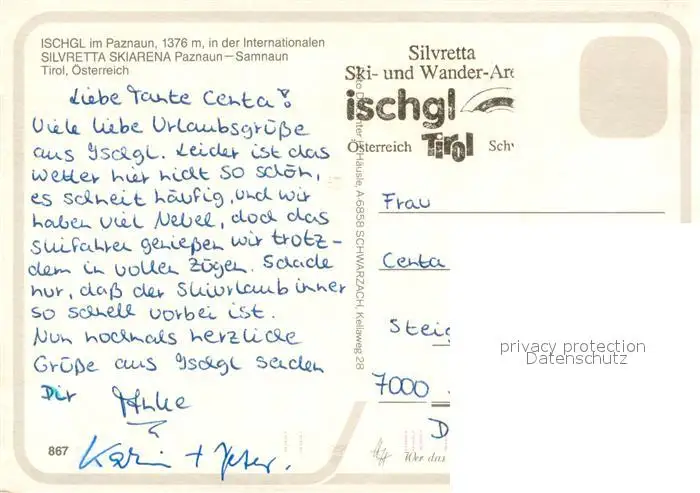 ISCHGL im Paznaun, 1376 m, in der Internationalen
SILVRETTA SKIARENA Paznaun–Samnaun
Tirol, Österreich
Liebe Tante Centa!
Viele liebe Urlaubsgrüße
aus Ischgl. Leider ist das
Wetter hier nicht so schön,
es schneit häufig, und wir
haben viel Nebel, doch das
Skifahren genießen wir trotz-
dem in vollen Zügen. Schade
nur, daß der Skiurlaub immer
so schnell vorbei ist.
Nun nochmals herzliche
Grüße aus Ischgl senden
Dir Anke
Karin + Peter.
867
Häusle, A-6858 SCHWARZACH, Kellaweg 28
Silvretta
Ski- und Wander-Are
ischgl
Österreich Tirol Schw
Frau
Centa
Steig
7000
D
Wer das
privacy protection
Datenschutz